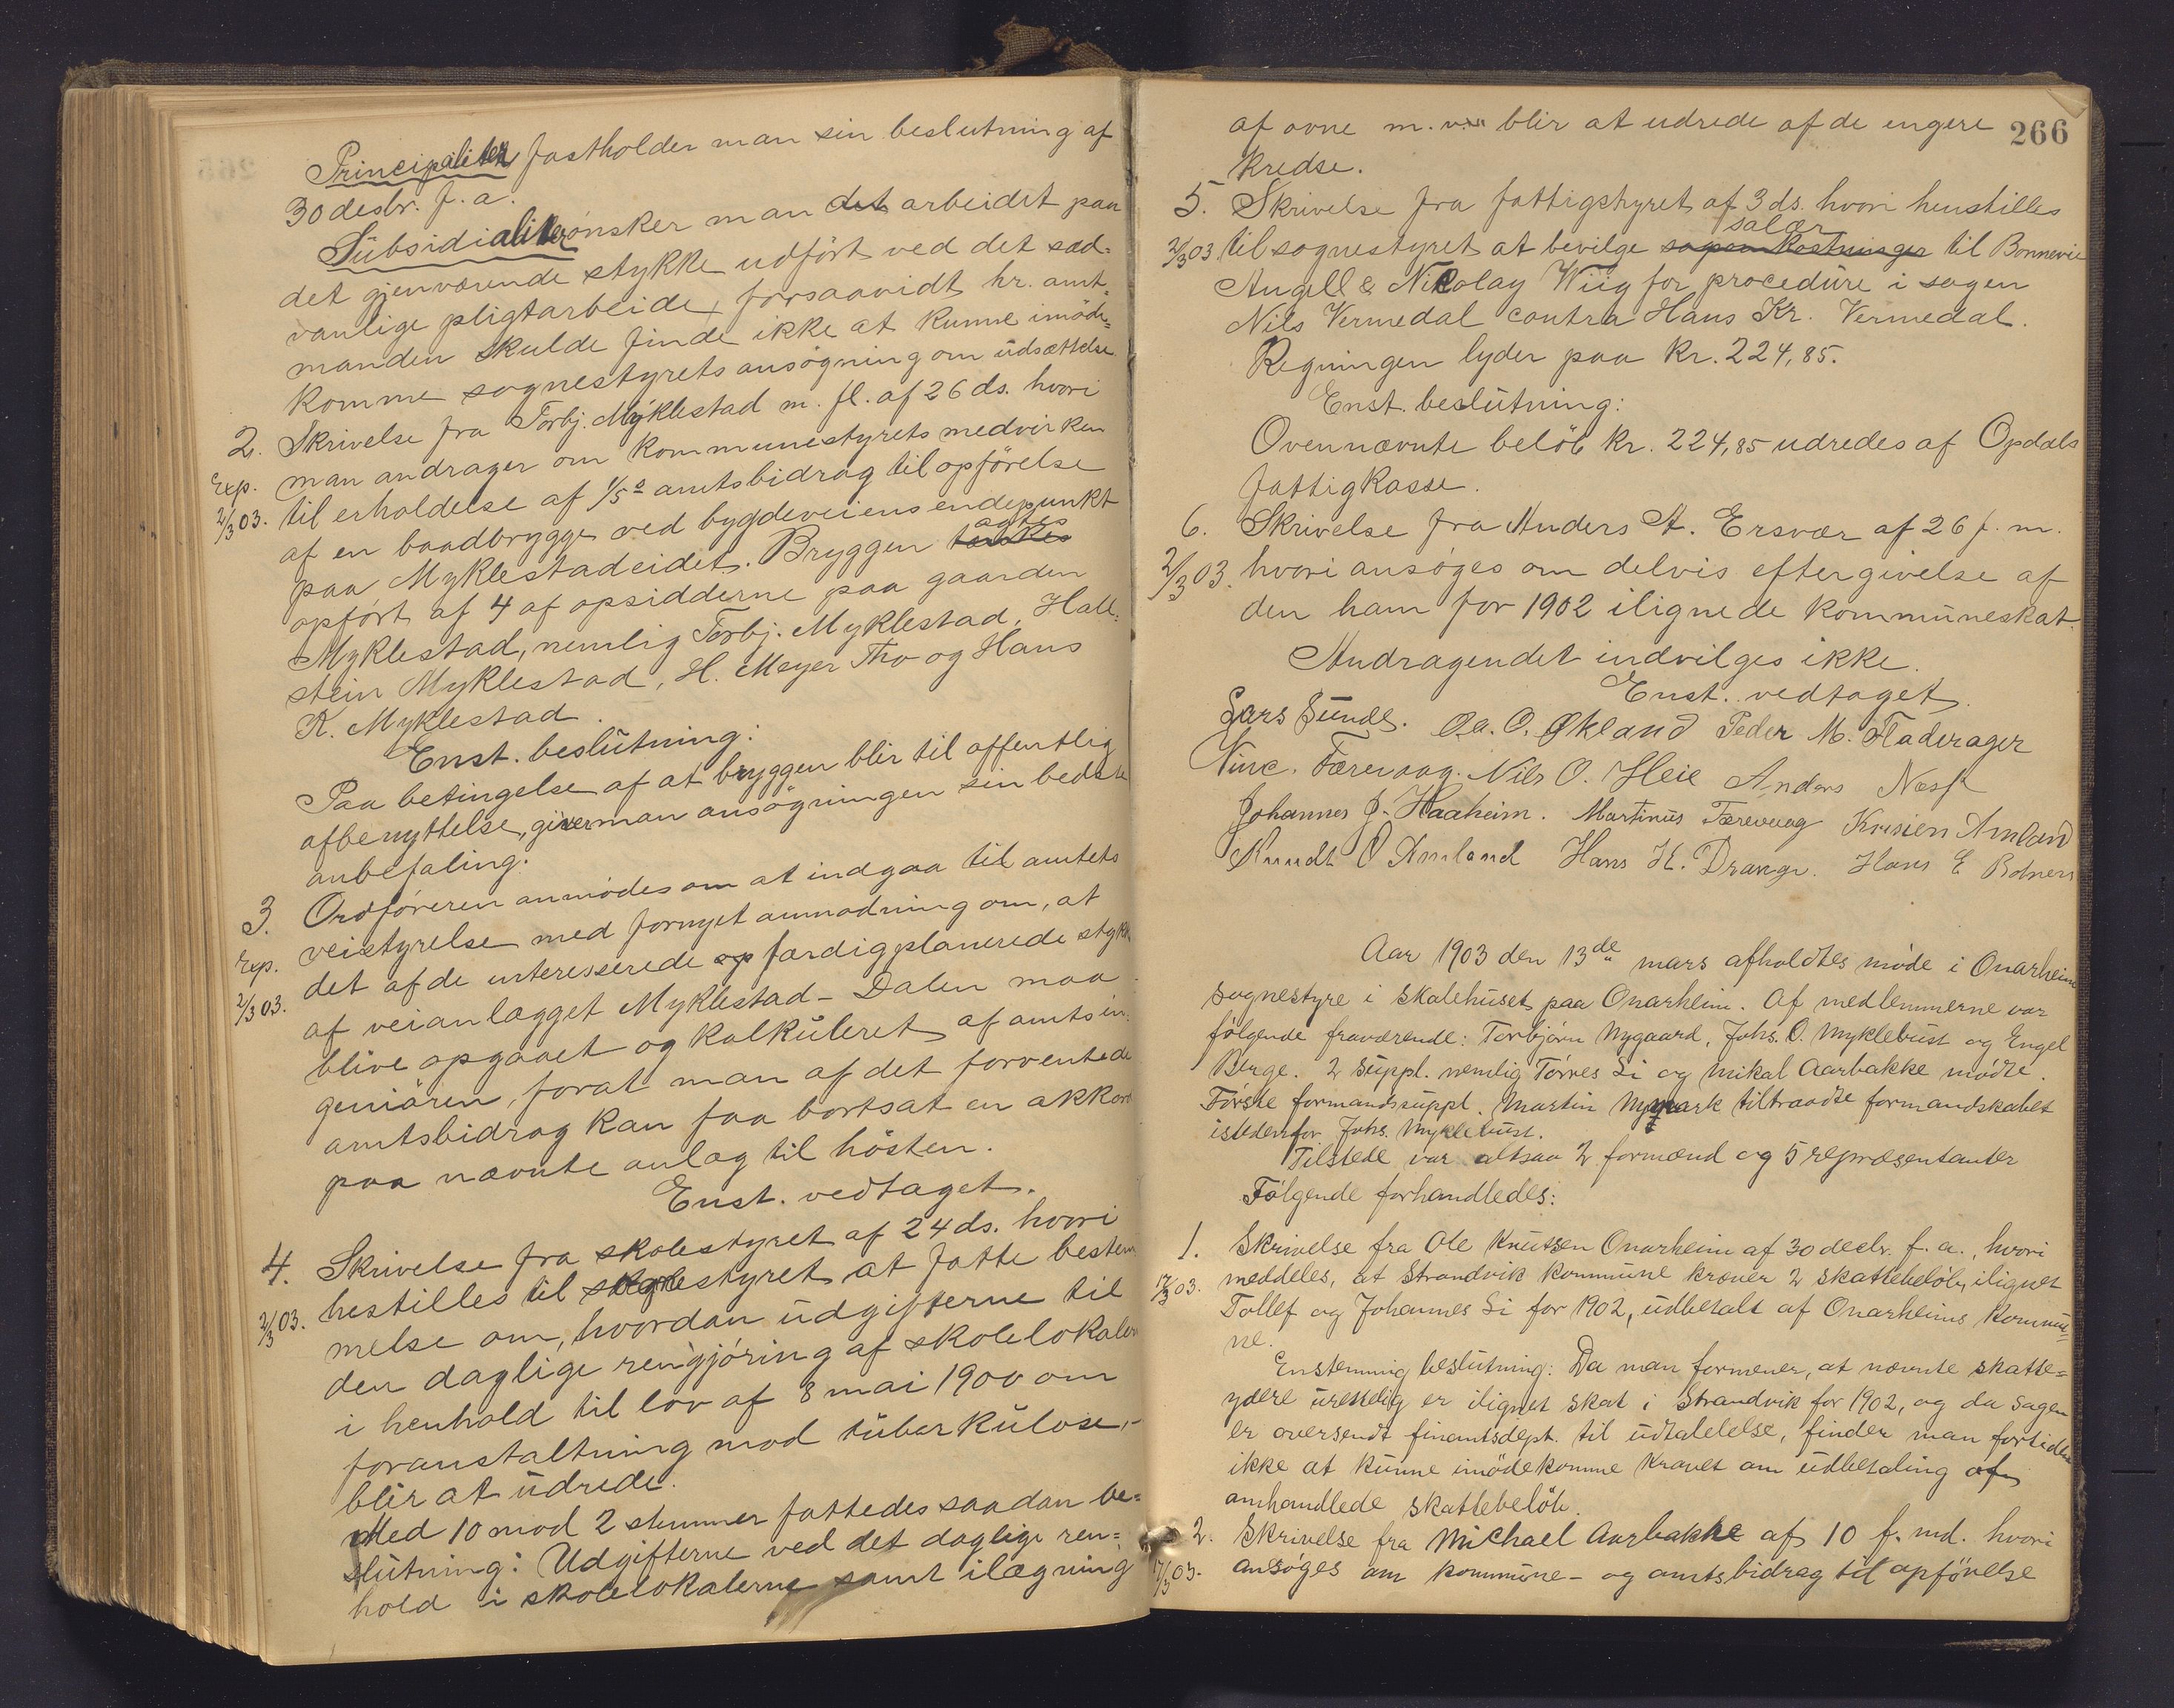 Principaliter fastholder man sin beslutning af
30 desbr. f. a.
Subsidialiter ønsker man det arbeidet paa
det gjenværende stykke udført ved det sæd-
vanlige pligtarbeide, forsaavidt hr. amt-
manden skulde finde ikke at kunne imøde-
komme sognestyrets ansøgning om udsættelse
2. Skrivelse fra Torbj. Myklestad m. fl. af 26 ds. hvori
Exp. man andrager om kommunestyrets medvirken
2/3 03. til erholdelse af 1/5 amtsbidrag til opførelse
af en baadbrygge ved bygdeveiens endepunkt
paa Myklestadeidet. Bryggen tænkes agtes
opført af 4 af opsidderne paa gaarden
Myklestad, nemlig Torbj. Myklestad, Hall-
stein Myklestad, H. Meyer Tho og Hans
K. Myklestad.
Enst. beslutning:
Paa betingelse af at bryggen blir til offentlig
afbenyttelse, giver man ansøgningen sin bedste
anbefaling.
3. Ordføreren anmodes om at indgaa til amtets
Exp. veistyrelse med fornyet anmodning om, at
2/3 03. det af de interesserede op færdigplanerede stykke
af veianlægget Myklestad - Dalen maa
blive opgaaet og kalkuleret af amtsin-
geniøren, forat man af det forventede
amtsbidrag kan faa bortsat en akkord
paa nævnte anlæg til høsten.
Enst. vedtaget.
4. Skrivelse fra skolestyret af 24 ds. hvori
2/3 03. hestilles til sognestyret at fatte bestem
melse om, hvordan udgifterne til
den daglige rengjøring af skolelokaler
i henhold til lov af 8 mai 1900 om
foranstaltning mod tuberkulose,-
blir at udrede.
Med 10 mod 2 stemmer fattedes saadan be-
slutning: Udgifterne ved det daglige ren-
hold i skolelokalerne samt ilægning
266
af ovne m. v. blir at udrede af de engere
kredse.
5. Skrivelse fra fattigstyret af 3 ds. hvori henstilles
2/3 03 til sognestyret at bevilge sagsomkostninger salær til Bonnevie
Angell & Nikolay Wiig for procedure i sagen
Nils Vermedal contra Hans Kr. Vermedal.
Regningen lyder paa kr. 224,85.
Enst. beslutning:
Ovennævnte beløb kr. 224,85 udredes af Opdals
fattigkasse.
6. Skrivelse fra Anders A. Ersvær af 26 f. m.
2/3 03. hvori ansøges om delvis eftergivelse af
den ham for 1902 ilignede kommuneskat.
Andragendet indvilges ikke.
Enst. vedtaget.
Lars Sunde. Aa. O. Økland Peder M. Fladerager
Vinc. Færevaag. Nils O. Heie Anders Næss
Johannes J. Haaheim. Martinus Færevaag Kristen Amland
Knudt O Amland Hans H. Drange. Hans E Botnen
Aar 1903 den 13de mars afholdtes møde i Onarheim
sognestyre i skolehuset paa Onarheim. Af medlemmerne var
følgende fraværende: Torbjørn Nygaard, Johs. O. Myklebust og Engel
Berge. 2 suppl. nemlig Tørres Li og Mikal Aarbakke mødte.
Første formandssuppl. Martin Nymark tiltraadte formandskabet
istedenfor Johs. Myklebust.
Tilstede var altsaa 2 formænd og 5 repræsentanter
Følgende forhandledes:
1. Skrivelse fra Ole Knutsen Onarheim af 30 decbr. f. a., hvori
17/3 03. meddeles, at Strandvik kommune kræver 2 skattebeløb, ilignet
Tollef og Johannes Li for 1902, udbetalt af Onarheims kommu-
ne.
Enstemmig beslutning: Da man formener, at nævnte skatte-
ydere urettelig er ilignet skat i Strandvik for 1902, og da sagen
er oversendt finantsdept. til udtalelse, finder man fortiden
ikke at kunne imødekomme kravet om udbetaling af
omhandlede skattebeløb.
2. Skrivelse fra Michael Aarbakke af 10 f. md. hvori
17/3 03. ansøges om kommune- og amtsbidrag til opførelse